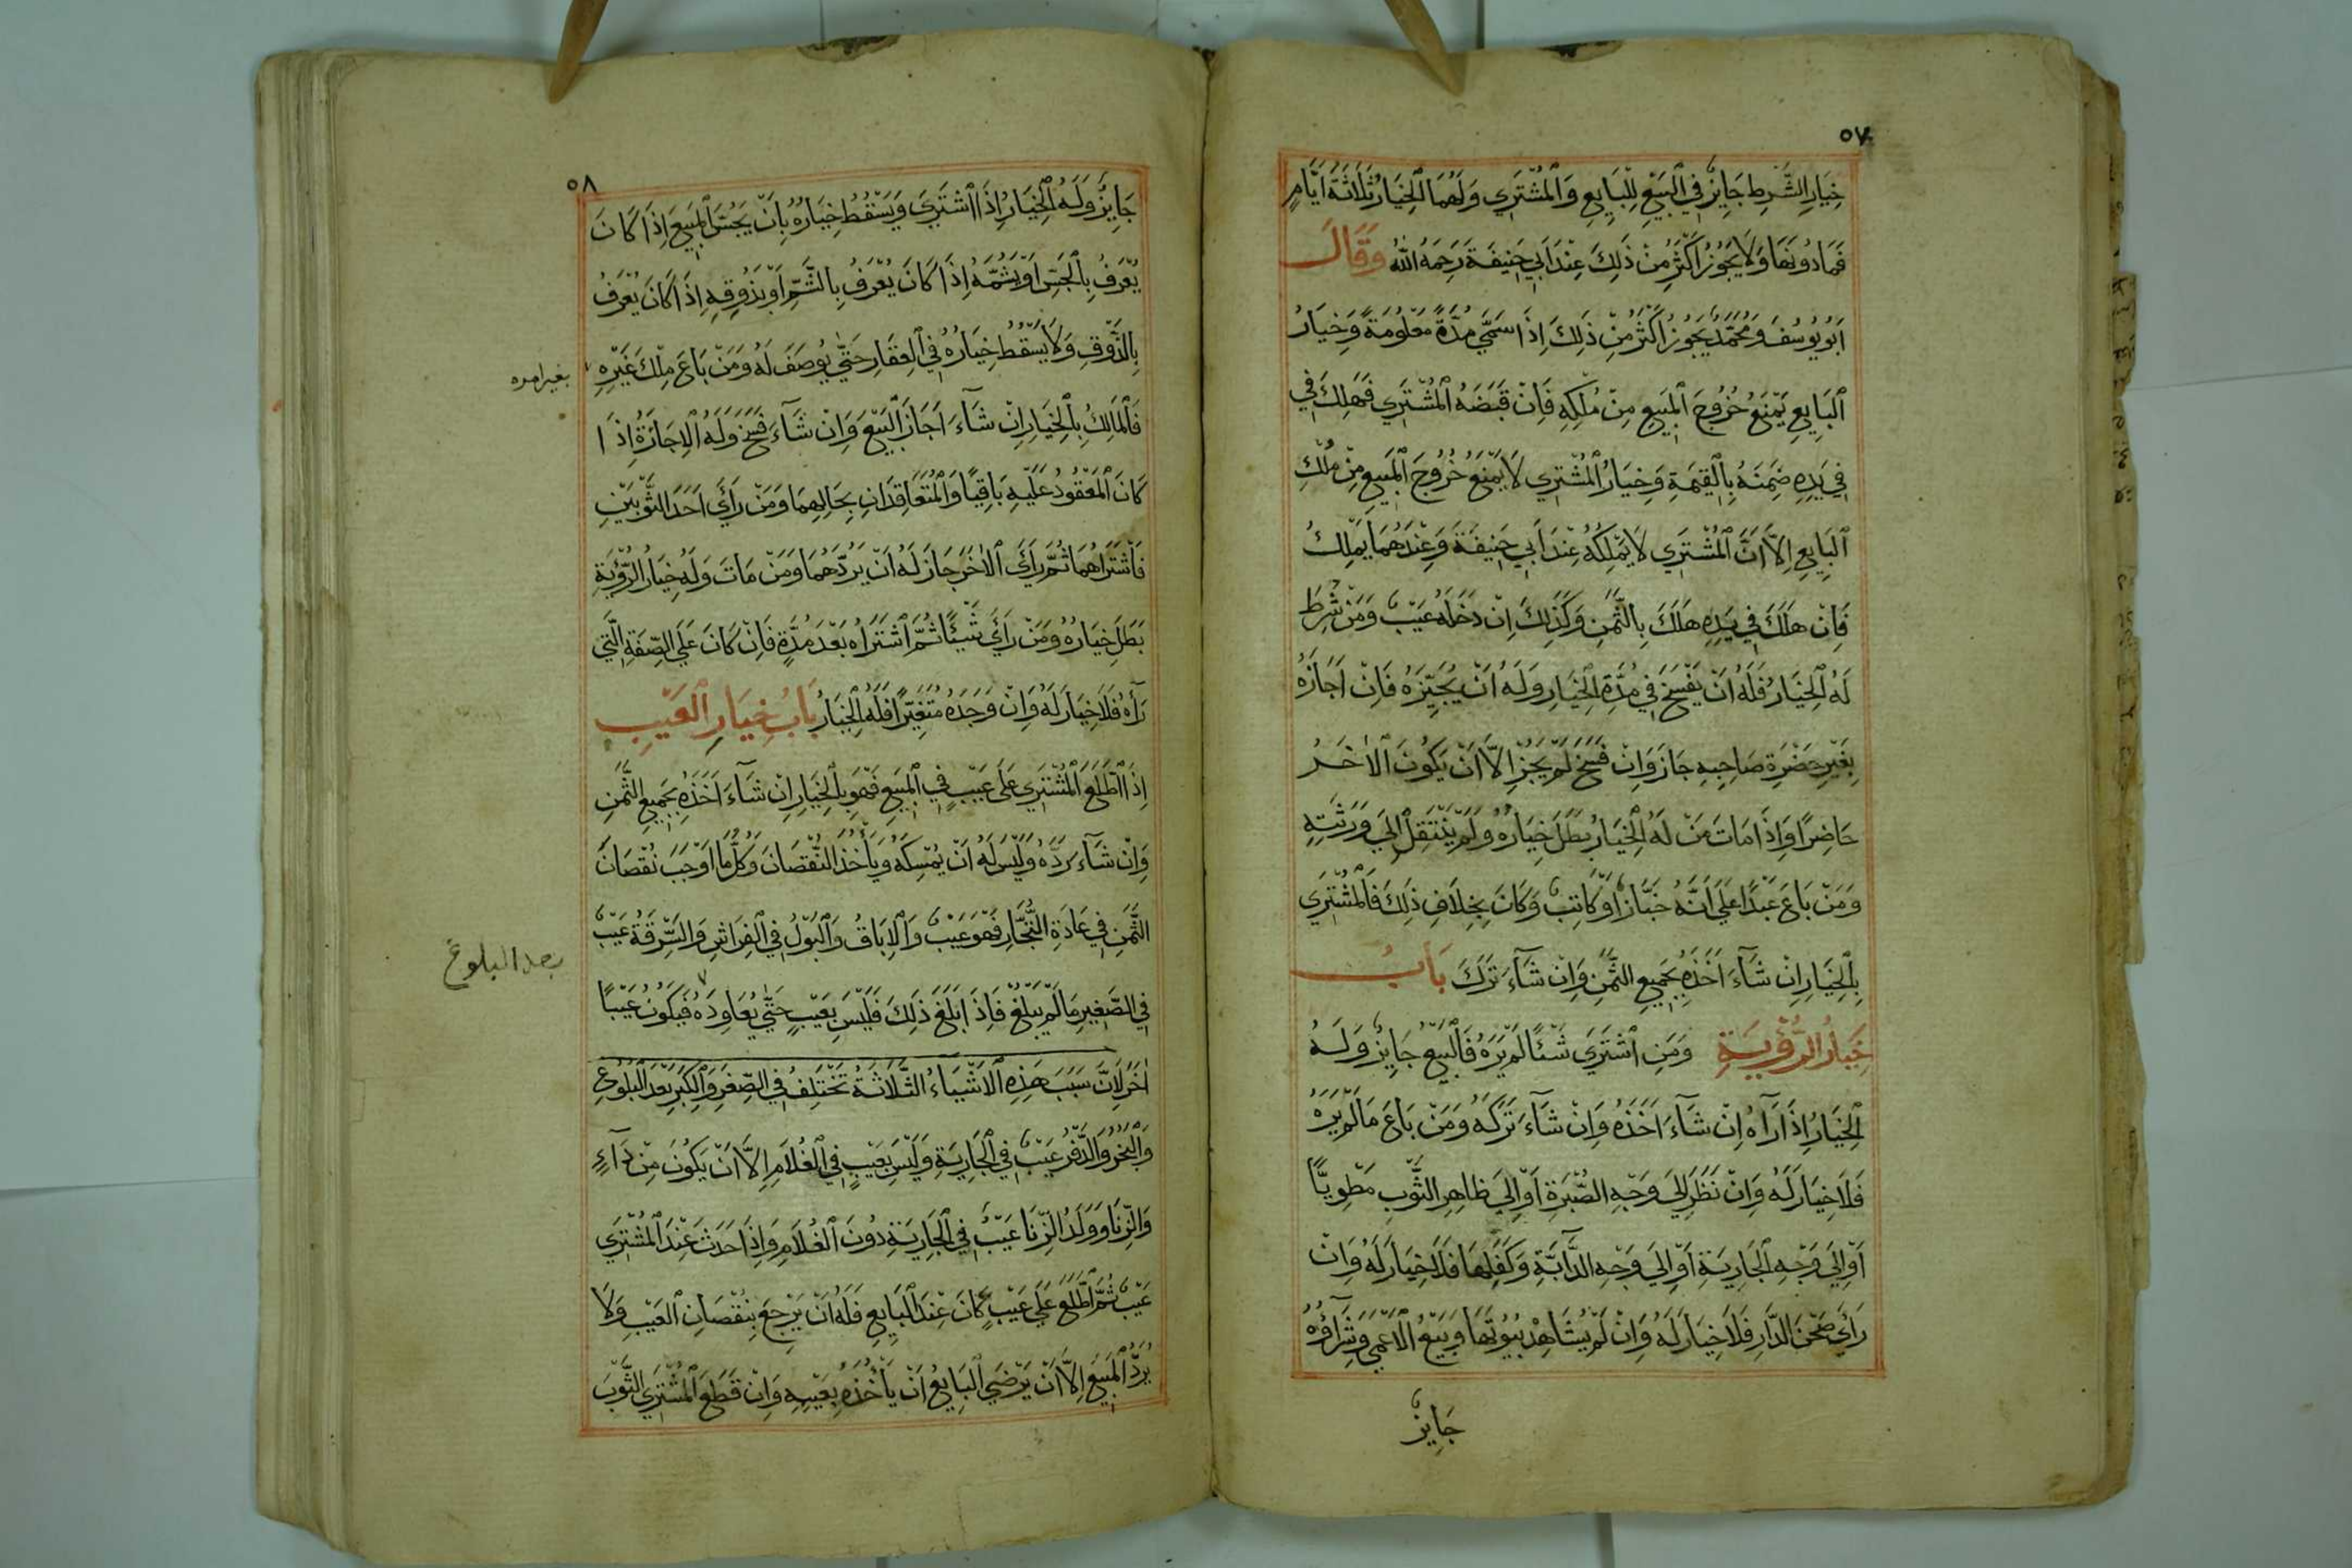 ٥٧
خِيَارِ الشَّرطِ جَايِزٌ فِي الْبَيْعِ لِلْبَايِعِ وَالْمُشْتَرِي وَلَهُمَا الْخِيَارُ ثَلَاثَةَ اَيَّامٍ
فَمَا دُونَهَا وَلَا يَجُوزُ اَكْثَرُ مِنْ ذَلِكَ عِنْدَ اَبِي حَنِيفَةَ رَحِمَهُ اللّٰهُ وَقَالَ
اَبُو يُوسُفَ وَمُحَمَّدٌ يَجُوزُ اَكْثَرُ مِنْ ذَلِكَ اِذَا سَمَّي مُدَّةً مَعْلُومَةً وَخِيَارُ
الْبَايِعِ يَمْنَعُ خُرُوجَ الْمَبِيعِ مِنْ مُلْكِهِ فَاِنْ قَبَضَهُ الْمُشْتَرِي فَهَلِكَ فِي
فِي يَدِهِ ضَمِنَهُ بِالْقِيمَةِ وَخِيَارُ الْمُشْتَرِي لَا يَمْنَعُ خُرُوجَ الْمَبِيعِ مِنْ مُلْكِ
الْبَايِعِ اِلَّا اَنَّ الْمُشْتَرِي لَا يَمْلِكُهُ عِنْدَ اَبِي حَنِيفَةَ وَعِنْدَهُمَا يَمْلِكُ
فَاِنْ هَلَكَ فِي يَدِهِ هَلَكَ بِالثَّمَنِ وَكَذَلِكَ اِنْ دَخَلَهُ عَيْبٌ وَمَنْ شُرِطَ
لَهُ الْخِيَارُ فَلَهُ اَنْ يَفْسَخَ فِي مُدَّةِ الْخِيَارِ وَلَهُ اَنْ يُجِيْزَهُ فَاِنْ اَجَازَهُ
بِغَيْرِ حَضْرَةِ صَاحِبِهِ جَازَ وَاِنْ فَسَخَ لَمْ يَجُزْ اِلَّا اَنْ يَكُونَ الْاٰخَرُ
حَاضِرًا وَاِذَا مَاتَ مَنْ لَهُ الْخِيَارُ بَطَلَ خِيَارُهُ وَلَمْ يَنْتَقِلْ اِلَي وَرَثَتِهِ
وَمَنْ بَاعَ عَبْدًا عَلَي اَنَّهُ خَبَّازٌ اَوْ كَاتِبٌ وَكَانَ بِخِلَافِ ذَلِكَ فَالْمُشْتَرِي
بِالْخِيَارِ اِنْ شَآءَ اَخَذَهُ بِجَمِيعِ الثَّمَنِ وَاِنْ شَآءَ تَرَكَ بَابُ
خِيَارُ الرُّؤْيَةِ وَمَنِ اشْتَرَي شَئًا لَمْ يَرَهُ فَالْبَيْعُ جَايِزٌ وَلَهُ
الْخِيَارُ اِذَا رَآهُ اِنْ شَآءَ اَخَذَهُ وَاِنْ شَآءَ تَرَكَهُ وَمَنْ بَاعَ مَا لَمْ يَرَهُ
فَلَا خِيَارَ لَهُ وَاِنْ نَظَرَ اِلَي وَجْهِ الصُّبْرَةِ اَوْ اِلَي ظَاهِرِ الثَّوْبِ مَطْوِيًّا
اَوْ اِلَي وَجْهِ الْجَارِيَةِ اَوْ اِلَي وَجْهِ الدَّابَّةِ وَكَفَلِهَا فَلَا خِيَارَ لَهُ وَاِنْ
رَاَي صَحْنَ الدَّارِ فَلَا خِيَارَ لَهُ وَاِنْ لَمْ يُشَاهِدْ بُيُوتَهَا وَبَيْعُ الْاَعْمَي وَشِرَآؤُهُ
جَايِزٌ
٥٨
جَايِزٌ وَلَهُ الْخِيَارُ اِذَا اشْتَرَي وَيَسْقُطُ خِيَارُهُ بِاَنْ يَجُسَّ الْمَبِيعَ اِذَا كَانَ
يُعْرَفُ بِالْجَسِّ اَوْ يَشُمَّهُ اِذَا كَانَ يُعْرَفُ بِالشَّمِّ اَوْ بِذَوْقِهِ اِذَا كَانَ يُعْرَفُ
بِالذَّوْقِ وَلَا يَسْقُطُ خِيَارُهُ فِي الْعِقَارِ حَتّٰي يُوصَفَ لَهُ وَمَنْ بَاعَ مِلْكَ غَيْرِهِ
بغير امره
فَالْمَالِكُ بِالْخِيَارِ اِنْ شَآءَ اَجَازَ الْبَيْعَ وَاِنْ شَآءَ فَسَخَ وَلَهُ الْاِجَازَةُ اِذَا
كَانَ الْمَعْقُودُ عَلَيْهِ بَاقِيًا وَالْمُتَعَاقِدَانِ بِحَالِهِمَا وَمَنْ رَاَي اَحَدَ الثَّوْبَيْنِ
فَاشْتَرَاهُمَا ثُمَّ رَاَي الْاٰخَرَ جَازَ لَهُ اَنْ يَرُدَّهُمَا وَمَنْ مَاتَ وَلَهُ خِيَارُ الرُّؤْيَةِ
بَطَلَ خِيَارُهُ وَمَنْ رَاَي شَيْئًا ثُمَّ اشْتَرَاهُ بَعْدَ مُدَّةٍ فَاِنْ كَانَ عَلَي الصِّفَةِ الَّتِي
رَآهُ فَلَا خِيَارَ لَهُ وَاِنْ وَجَدَهُ مُتَغَيِّرًا فَلَهُ الْخِيَارُ بَابُ خِيَارِ الْعَيْبِ
اِذَا اطَّلَعَ الْمُشْتَرِي عَلَي عَيْبٍ فِي الْمَبِيعِ فَهُوَ بِالْخِيَارِ اِنْ شَآءَ اَخَذَهُ بِجَمِيعِ الثَّمَنِ
وَاِنْ شَآءَ رَدَّهُ وَلَيْسَ لَهُ اَنْ يُمْسِكَهُ وَيَأْخُذَ النُّقْصَانَ وَكُلُّ مَا اَوْجَبَ نُقْصَانَ
الثَّمَنِ فِي عَادَةِ التُّجَّارِ فَهُوَ عَيْبٌ وَالْاِبَاقُ وَالْبَوْلُ فِي الْفِرَاشِ وَالسَّرِقَةُ عَيْبٌ
فِي الصَّغِيرِ مَا لَمْ يَبْلُغْ فَاِذَا بَلَغَ ذَلِكَ فَلَيْسَ بِعَيْبٍ حَتّٰي يُعَاوِدَهُ فَيَكُونُ عَيْبًا
بعد البلوغ
اٰخَرَ لِاَنَّ سَبَبَ هَذِهِ الْاَشْيَاءُ الثَّلَاثَةُ تَخْتَلِفُ فِي الصِّغَرِ وَالْكِبَرِ بَعْدَ الْبُلُوغِ
وَالْبَخْرُ وَالدَّفْرُ عَيْبٌ فِي الْجَارِيَةِ وَلَيْسَ بِعَيْبٍ فِي الْغُلَامِ اِلَّا اَنْ يَكُونَ مِنْ دَآءٍ
وَالزِّنَا وَوَلَدُ الزِّنَا عَيْبٌ فِي الْجَارِيَةِ دُونَ الْغُلَامِ وَاِذَا حَدَثَ عِنْدَ الْمُشْتَرِي
عَيْبٌ ثُمَّ اطَّلَعَ عَلَي عَيْبٍ كَانَ عِنْدَ الْبَايِعِ فَلَهُ اَنْ يَرْجِعَ بِنُقْصَانِ الْعَيْبِ وَلَا
يَرُدُّ الْمَبِيعَ اِلَّا اَنْ يَرْضَي الْبَايِعُ اَنْ يَأْخُذَهُ بِعَيْبِهِ وَاِنْ قَطَعَ الْمُشْتَرِي الثَّوْبَ